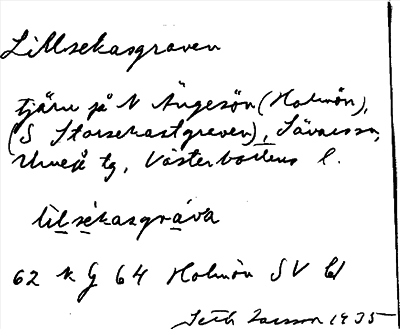 Lillsekasgraven
tjärn på N Ängesön (Holmön),
(S Storsekastgreven), Sävars sn,
Umeå tg, Västerbottens l.
lìlsékasgráva
62 k G 64 Holmön SV bl
Seth Larsson 1935